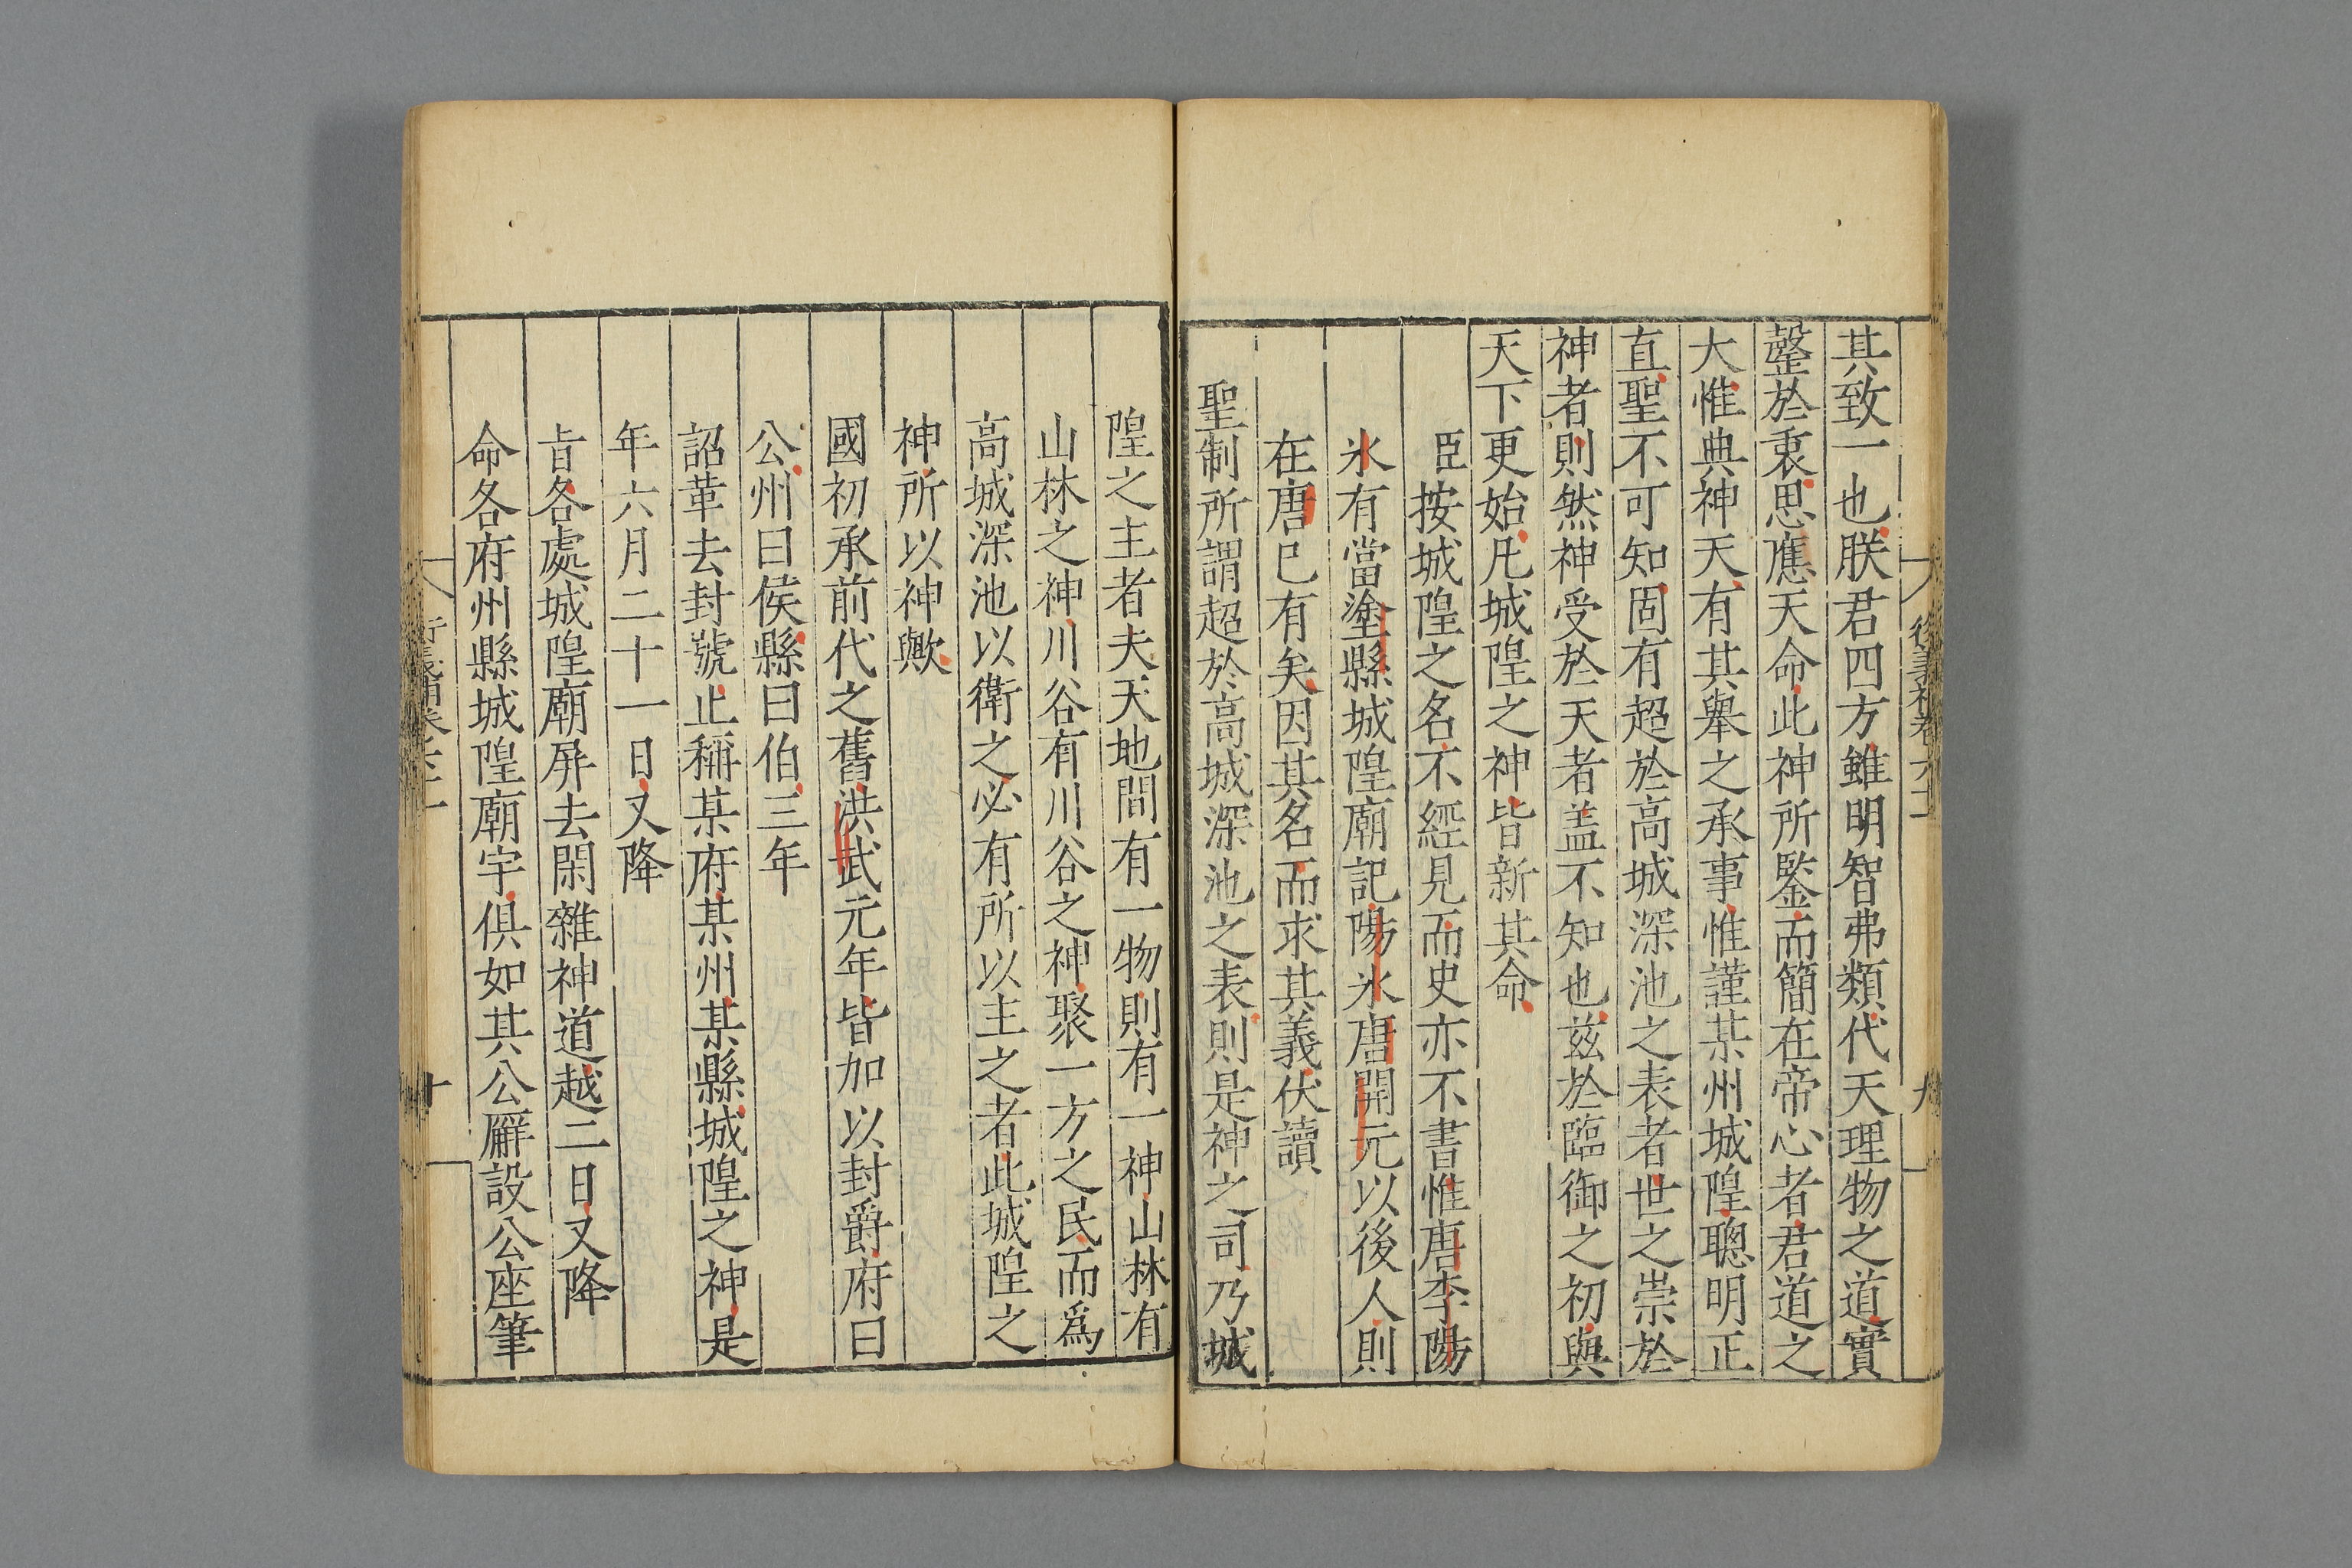 其致一也朕君四方雖明智弗類代天理物之道實
罄於衷思應天命此神所鑒而簡在帝心者君道之
大惟典神天有其舉之承事惟謹某州城隍聰明正
直聖不可知固有超於高城深池之表者世之崇於
神者則然神受於天者盖不知也兹於臨御之初與
天下更始凡城隍之神皆新其命
臣按城隍之名不經見而史亦不書惟唐李陽
氷有當塗縣城隍廟記陽氷唐開元以後人則
在唐已有矣因其名而求其義伏讀
聖制所謂超於高城深池之表則是神之司乃城
隍之主者夫天地間有一物則有一神山林有
山林之神川谷有川谷之神聚一方之民而爲
高城深池以衛之必有所以主之者此城隍之
神所以神歟
國初承前代之舊洪武元年皆加以封爵府曰
公州曰侯縣曰伯三年
詔革去封號止稱某府某州某縣城隍之神是
年六月二十一日又降
旨各處城隍廟屏去閑雜神道越二日又降
命各府州縣城隍廟宇俱如其公廨設公座筆
九
十